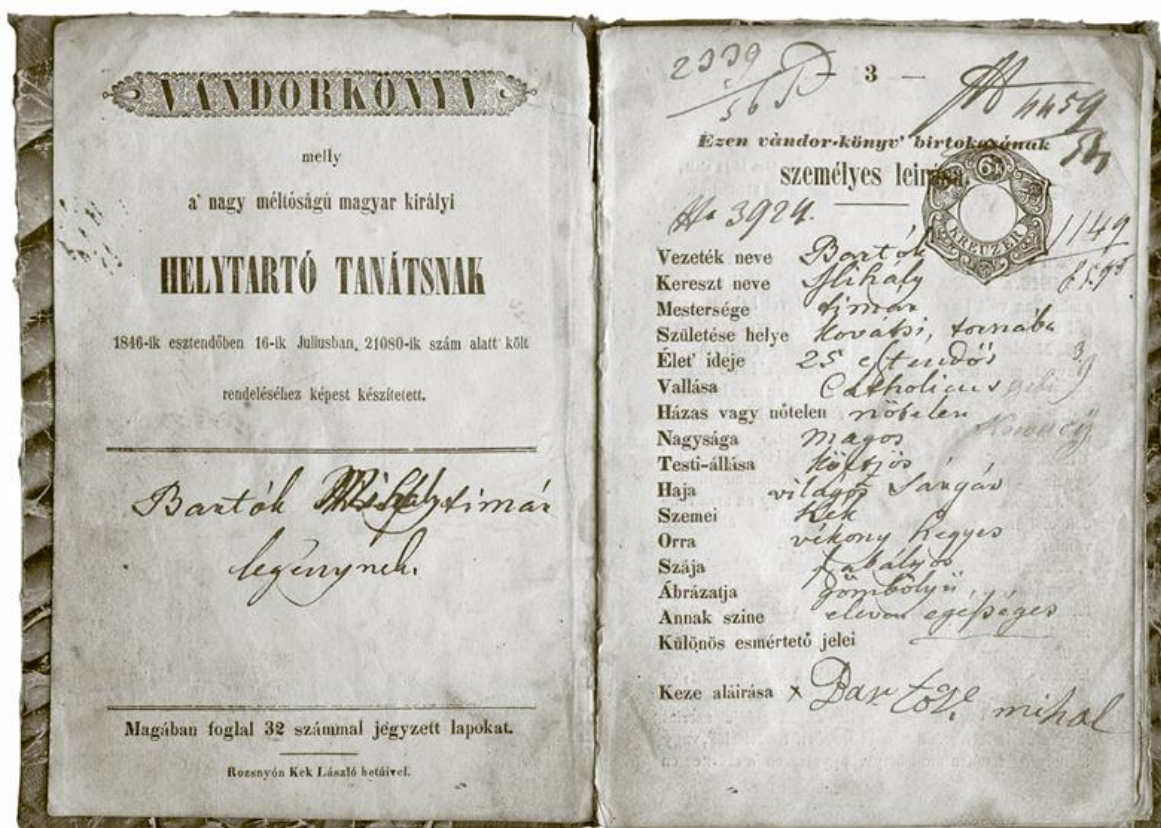 VÁNDORKÖNYV
melly
a' nagy méltóságú magyar királyi
HELYTARTÓ TANÁTSNAK
1846-ik esztendőben 16-ik Juliusban, 21080-ik szám alatt költ
rendeléséhez képest készítetett.
Bartók Mihály timár
legénynek.
Magában foglal 32 számmal jegyzett lapokat.
Rozsnyón Kek László betűivel.
2339
— 3 —
56
4459
Ezen vàndor-könyv' birtokosának
személyes leirása.
6 K
KREUZER
No 3924.
1149
Vezeték neve Bartók
Kereszt neve Mihaly
Mestersége timar
Születése helye Kovátsi, tornába
Élet' ideje 25 esztendős
Vallása Catholicus
Házas vagy nőtelen nőtelen
Nagysága magos
Testi-állása
Haja világos Sárgás
Szemei Kék
Orra vékony hegyes
Szája Szabályos
Ábrázatja gömbölyű,
Annak szine eleven egességes
Különös esmértető jelei
Keze aláirása x Bartók mihal